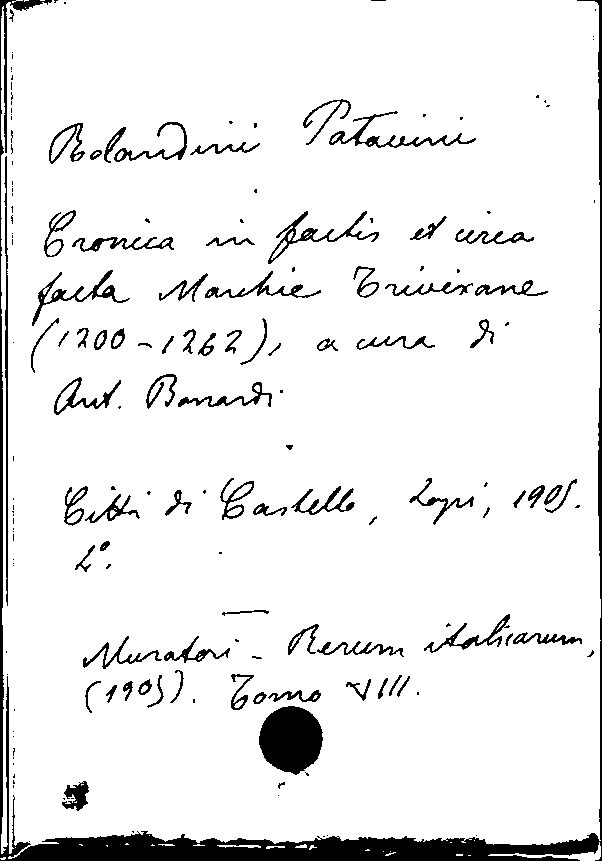 Rolandini Patavini
Cronica in factis et circa
facta Marchie Trivixane
(1200-1262), a cura di
Ant. Bonardi
Città di Castello, Lapi, 1905.
2°.
Muratori - Rerum italicarum,
(1905). Tomo VIII.